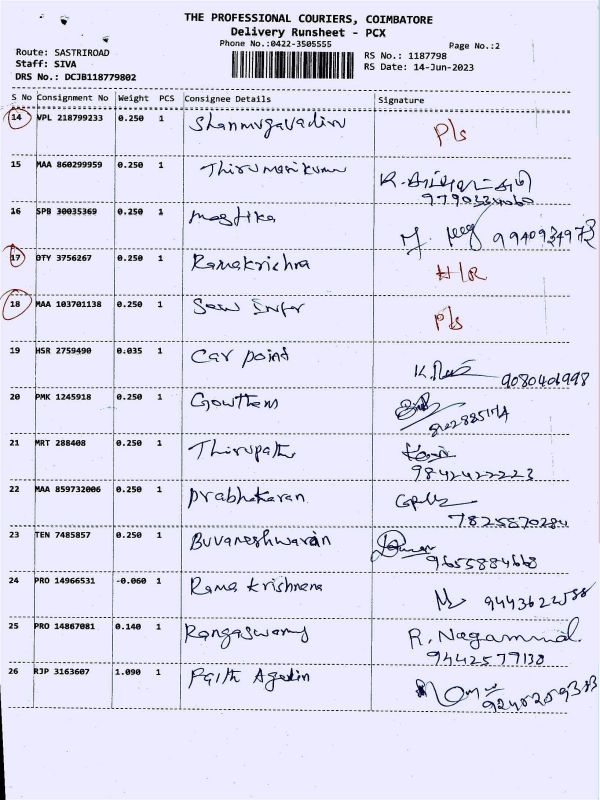 THE PROFESSIONAL COURIERS, COIMBATORE
Delivery Runsheet - PCX
Phone No.:0422-3505555
Page No.:2
Route: SASTRIROAD
Staff: SIVA
DRS No.: DCJB118779802
RS No.: 1187798
RS Date: 14-Jun-2023
S No Consignment No Weight PCS Consignee Details Signature
14 VPL 218799233 0.250 1 Shanmugavadivu P/s
15 MAA 860299959 0.250 1 Thirumanikumar
16 SPB 30035369 0.250 1
9940934973
17 OTY 3756267 0.250 1 Ramakrishna H/R
18 MAA 103701138 0.250 1 P/s
19 HSR 2759490 0.035 1 Car point
9080401998
20 PMK 1245918 0.250 1 Gowtham
21 MRT 288408 0.250 1 Thirupathi
9842422223
22 MAA 859732006 0.250 1 Prabhakaran
7825870284
23 TEN 7485857 0.250 1 Buvaneshwaran
9655884668
24 PRO 14966531 -0.060 1 Rama Krishnana
25 PRO 14867081 0.140 1 Rangaswamy R. Nagammal.
9442579138
26 RJP 3163607 1.090 1 Faith